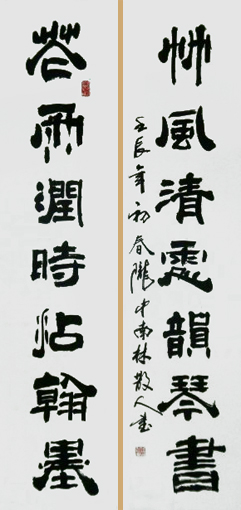 艸風清處韻琴書
花雨潤時沾翰墨
壬辰年初春隴中南林散人書